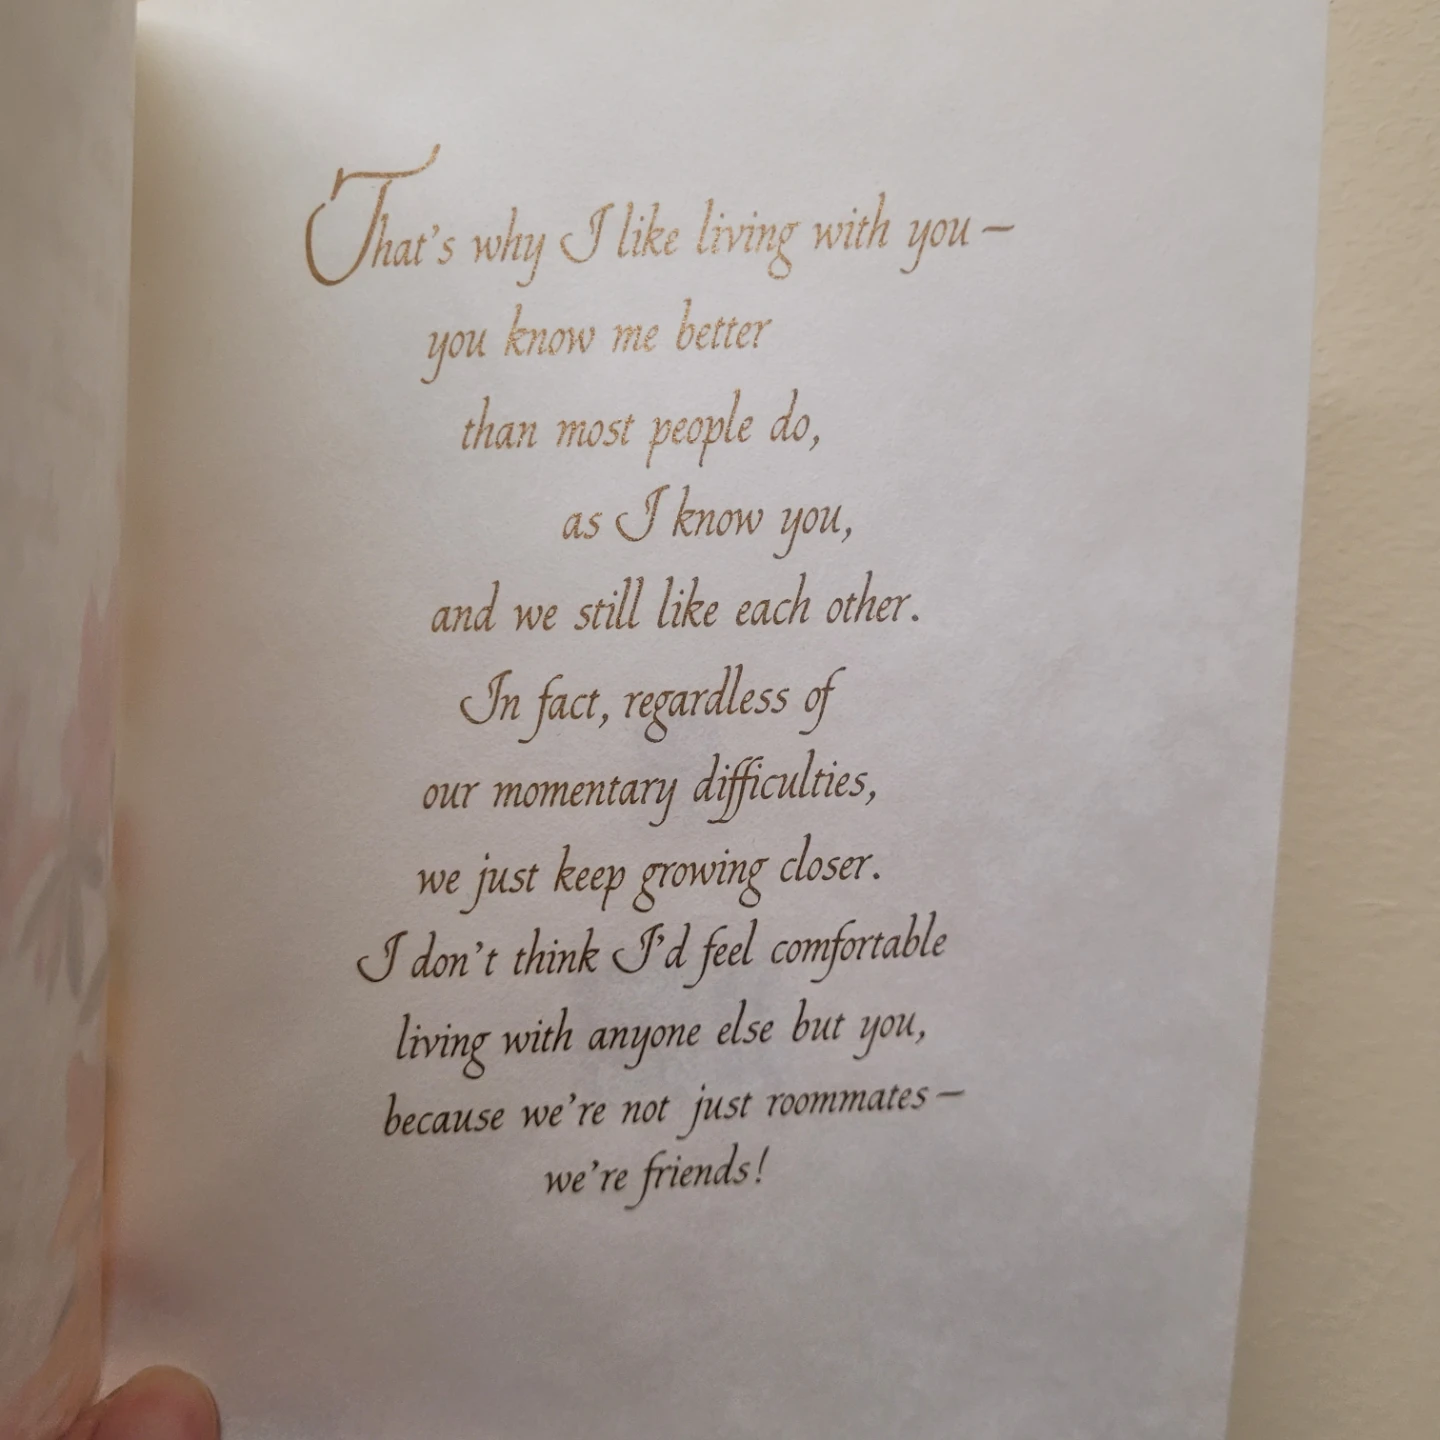 That's why I like living with you —
you know me better
than most people do,
as I know you,
and we still like each other.
In fact, regardless of
our momentary difficulties,
we just keep growing closer.
I don't think I'd feel comfortable
living with anyone else but you,
because we're not just roommates —
we're friends!